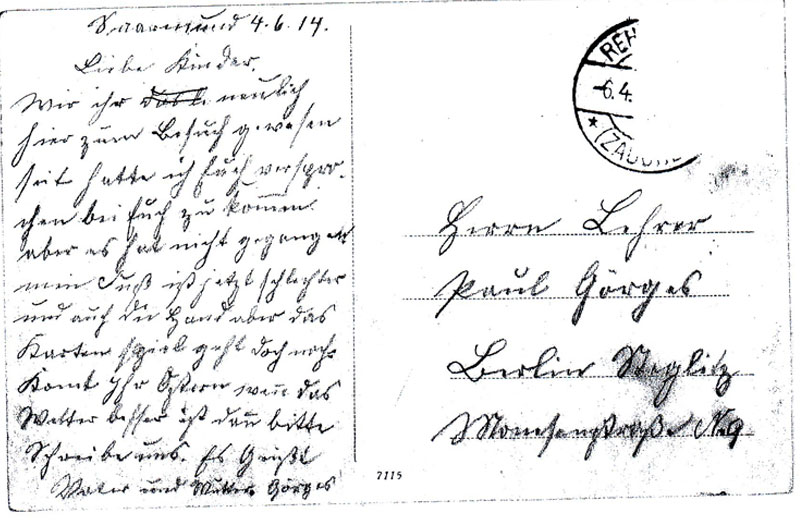 Saarmund 4.6.14.
Liebe Kinder.
Wir ihr neulich
hier zum Besuch gewesen
seit hatte ich Euch verspro-
chen bei Euch zu kommen
aber es hat nicht gegangen
mein Fuß ist jetzt schlechter
und auch die Hand aber das
Karten spiel geht doch noch
Komt Ihr Ostern wen̄ das
Wetter besser ist dan̄ bitte
Schreibe uns. Es Grüßt
Vater und Mutter Görges
REH
-6.4.
* (ZAUCH
Herrn Lehrer
Paul Görges
Berlin Steglitz
No 9
7115